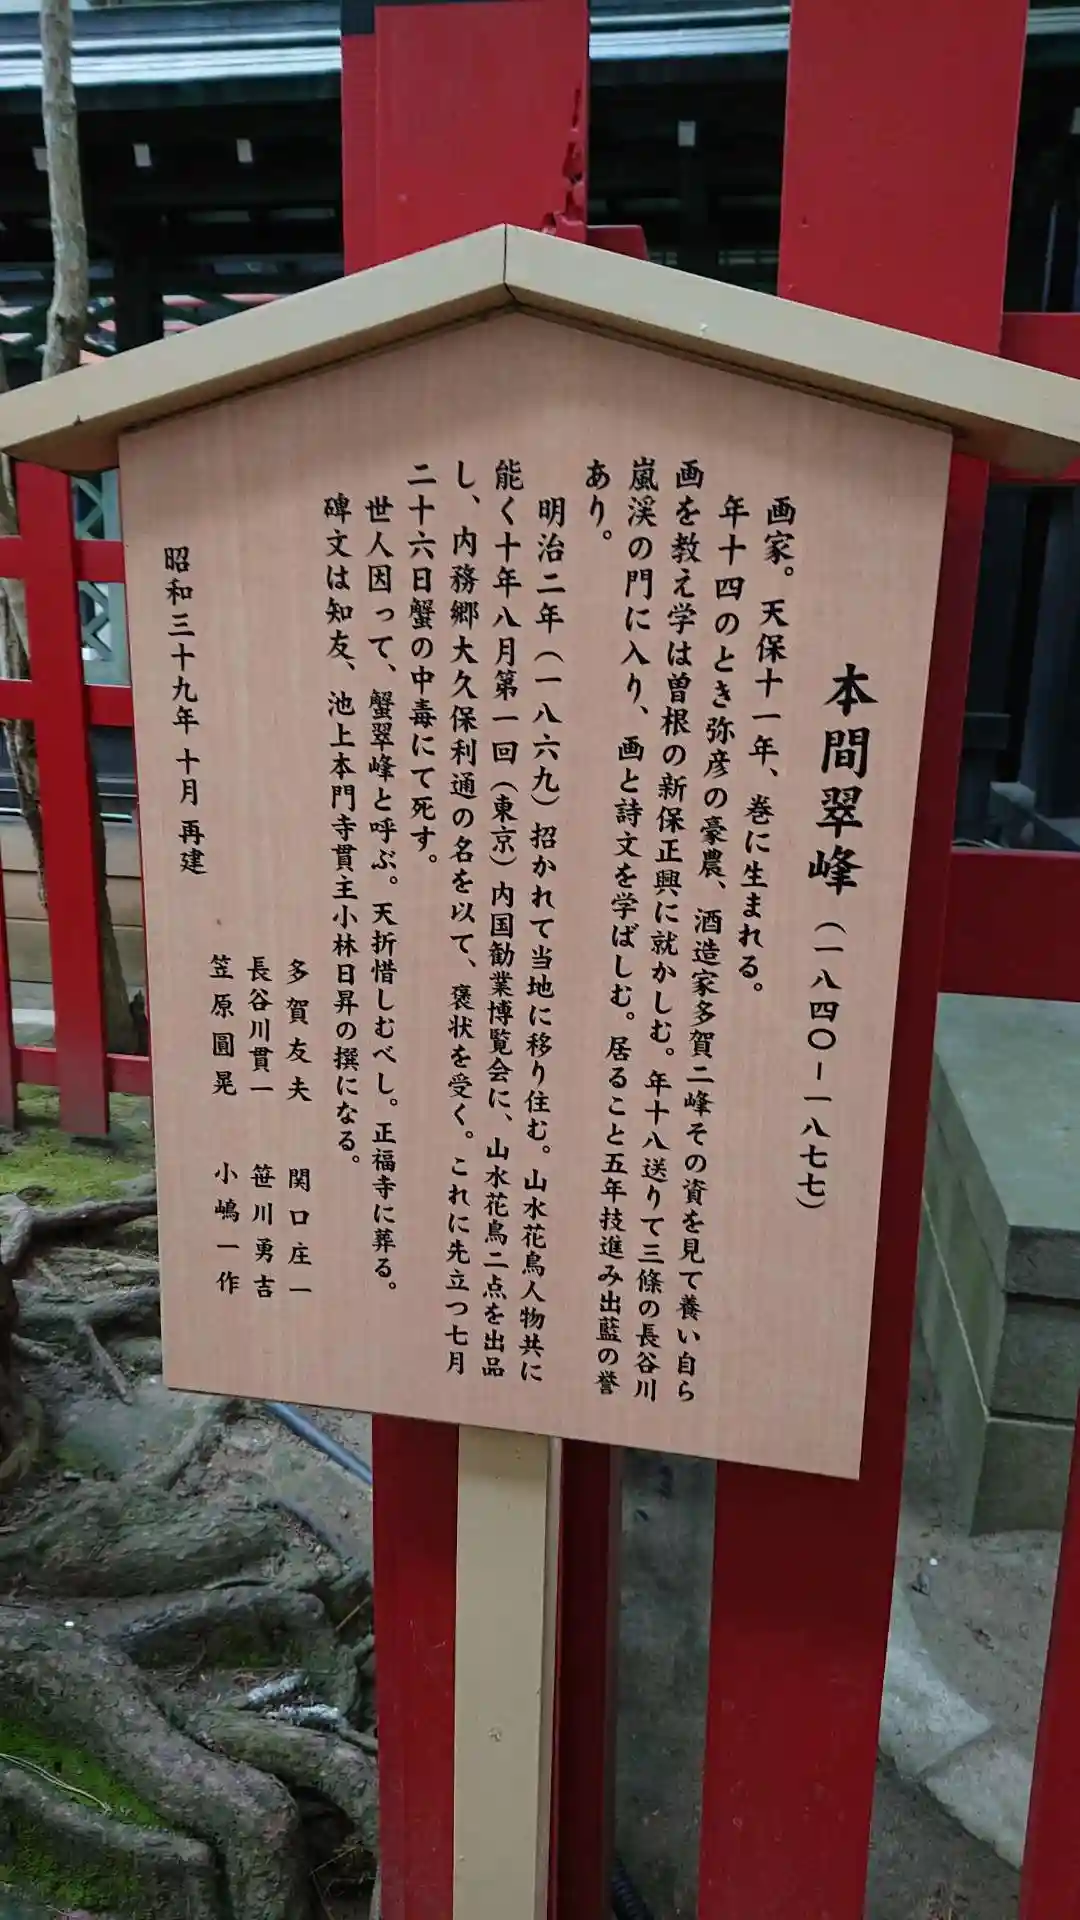 本間翠峰(一八四〇-一八七七)
画家。天保十一年、巻に生まれる。
年十四のとき弥彦の豪農、酒造家多賀二峰その資を見て養い自ら
画を教え学は曽根の新保正興に就かしむ。年十八送りて三條の長谷川
嵐渓の門に入り、画と詩文を学ばしむ。居ること五年技進み出藍の誉
あり。
明治二年(一八六九)招かれて当地に移り住む。山水花鳥人物共に
能く十年八月第一回(東京)内国勧業博覧会に、山水花鳥二点を出品
し、内務郷大久保利通の名を以て、褒状を受く。これに先立つ七月
二十六日蟹の中毒にて死す。
世人因って、蟹翠峰と呼ぶ。天折惜しむべし。正福寺に葬る。
碑文は知友、池上本門寺貫主小林日昇の撰になる。
多賀友夫 関口庄一
長谷川貫一 笹川勇吉
笠原圓晃 小嶋一作
昭和三十九年十月再建